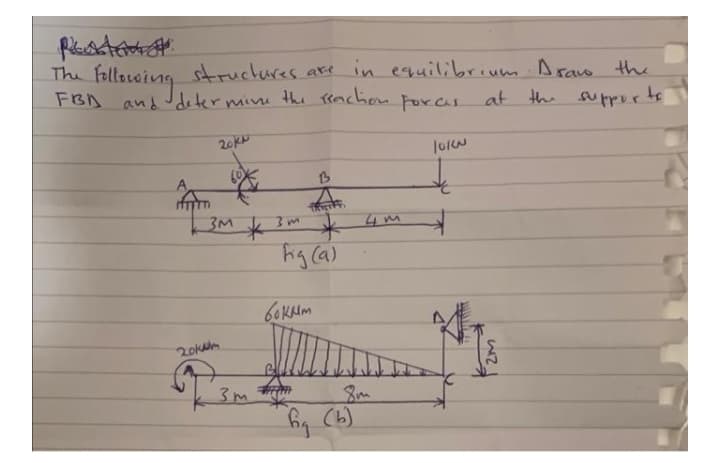 The following structures are in equilibrium Draw the
FBD and determine the reaction forces at the supports
20KN
10KN
60°
A
B
C
3M
3m
4m
fig (a)
60KNm
D
20KNm
A
B
2m
C
3m
8m
fig (b)